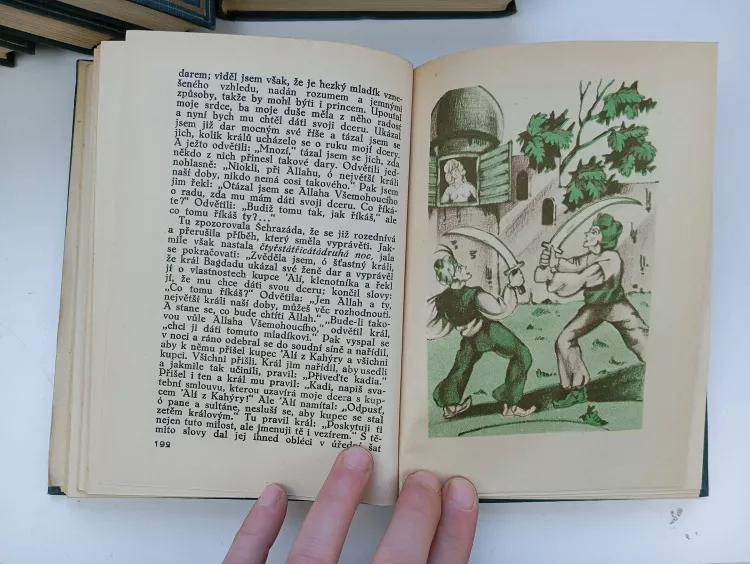 darem; viděl jsem však, že je hezký mladík vzne-
šeného vzhledu, nadán rozumem a jemnými
způsoby, takže by mohl býti i princem. Upoutal
moje srdce, ba moje duše měla z něho radost
a nyní bych mu chtěl dáti svoji dceru. Ukázal
jsem již dar mocným své říše a tázal jsem se
jich, kolik králů ucházelo se o ruku mojí dcery.
A ježto odvětili: „Mnozí,“ tázal jsem se jich, zda
někdo z nich přinesl takové dary. Odvětili jed-
nohlasně: „Nikoli, při Allahu, ó největší králi
naší doby, nikdo nemá cosi takového.“ Pak jsem
jim řekl: „Otázal jsem se Allaha Všemohoucího
o radu, zda mu mám dáti svoji dceru. Co říká-
te?“ Odvětili: „Budiž tomu tak, jak říkáš,“ ale
co tomu říkáš ty?...“
Tu zpozorovala Šehrazáda, že se již rozednívá
a přerušila příběh, který směla vyprávěti. Jak-
mile však nastala čtyřstátřicátádruhá noc, jala
se pokračovati: „Zvěděla jsem, ó šťastný králi,
že král Bagdadu ukázal své ženě dar a vyprávěl
jí o vlastnostech kupce ʻAlí, klenotníka a řekl
jí, že mu chce dáti svou dceru; končil slovy:
„Co tomu říkáš?“ Odvětila: „Jen Allah a ty,
největší králi naší doby, můžeš věc rozhodnouti.
A stane se, co bude chtíti Allah.“ „Bude-li tako-
vou vůle Allaha Všemohoucího,“ odvětil král,
„chci ji dáti tomuto mladíkovi.“ Pak vyspal se
v noci a ráno odebral se do soudní síně a nařídil,
aby k němu přišel kupec ʻAlí z Kahýry a všichni
kupci. Všichni přišli. Král jim nařídil, aby usedli
a jakmile tak učinili, pravil: „Přiveďte kadia.“
Přišel i ten a král mu pravil: „Kadi, napiš sva-
tební smlouvu, kterou uzavírá moje dcera s kup-
cem ʻAlí z Kahýry!“ Ale ʻAlí namítal: „Odpusť,
ó pane a sultáne, nesluší se, aby kupec se stal
zetěm královým.“ Tu pravil král: „Poskytuji ti
nejen tuto milost, ale jmenuji tě i vezírem.“ S tě-
mito slovy dal jej ihned obléci v úřední šat
192